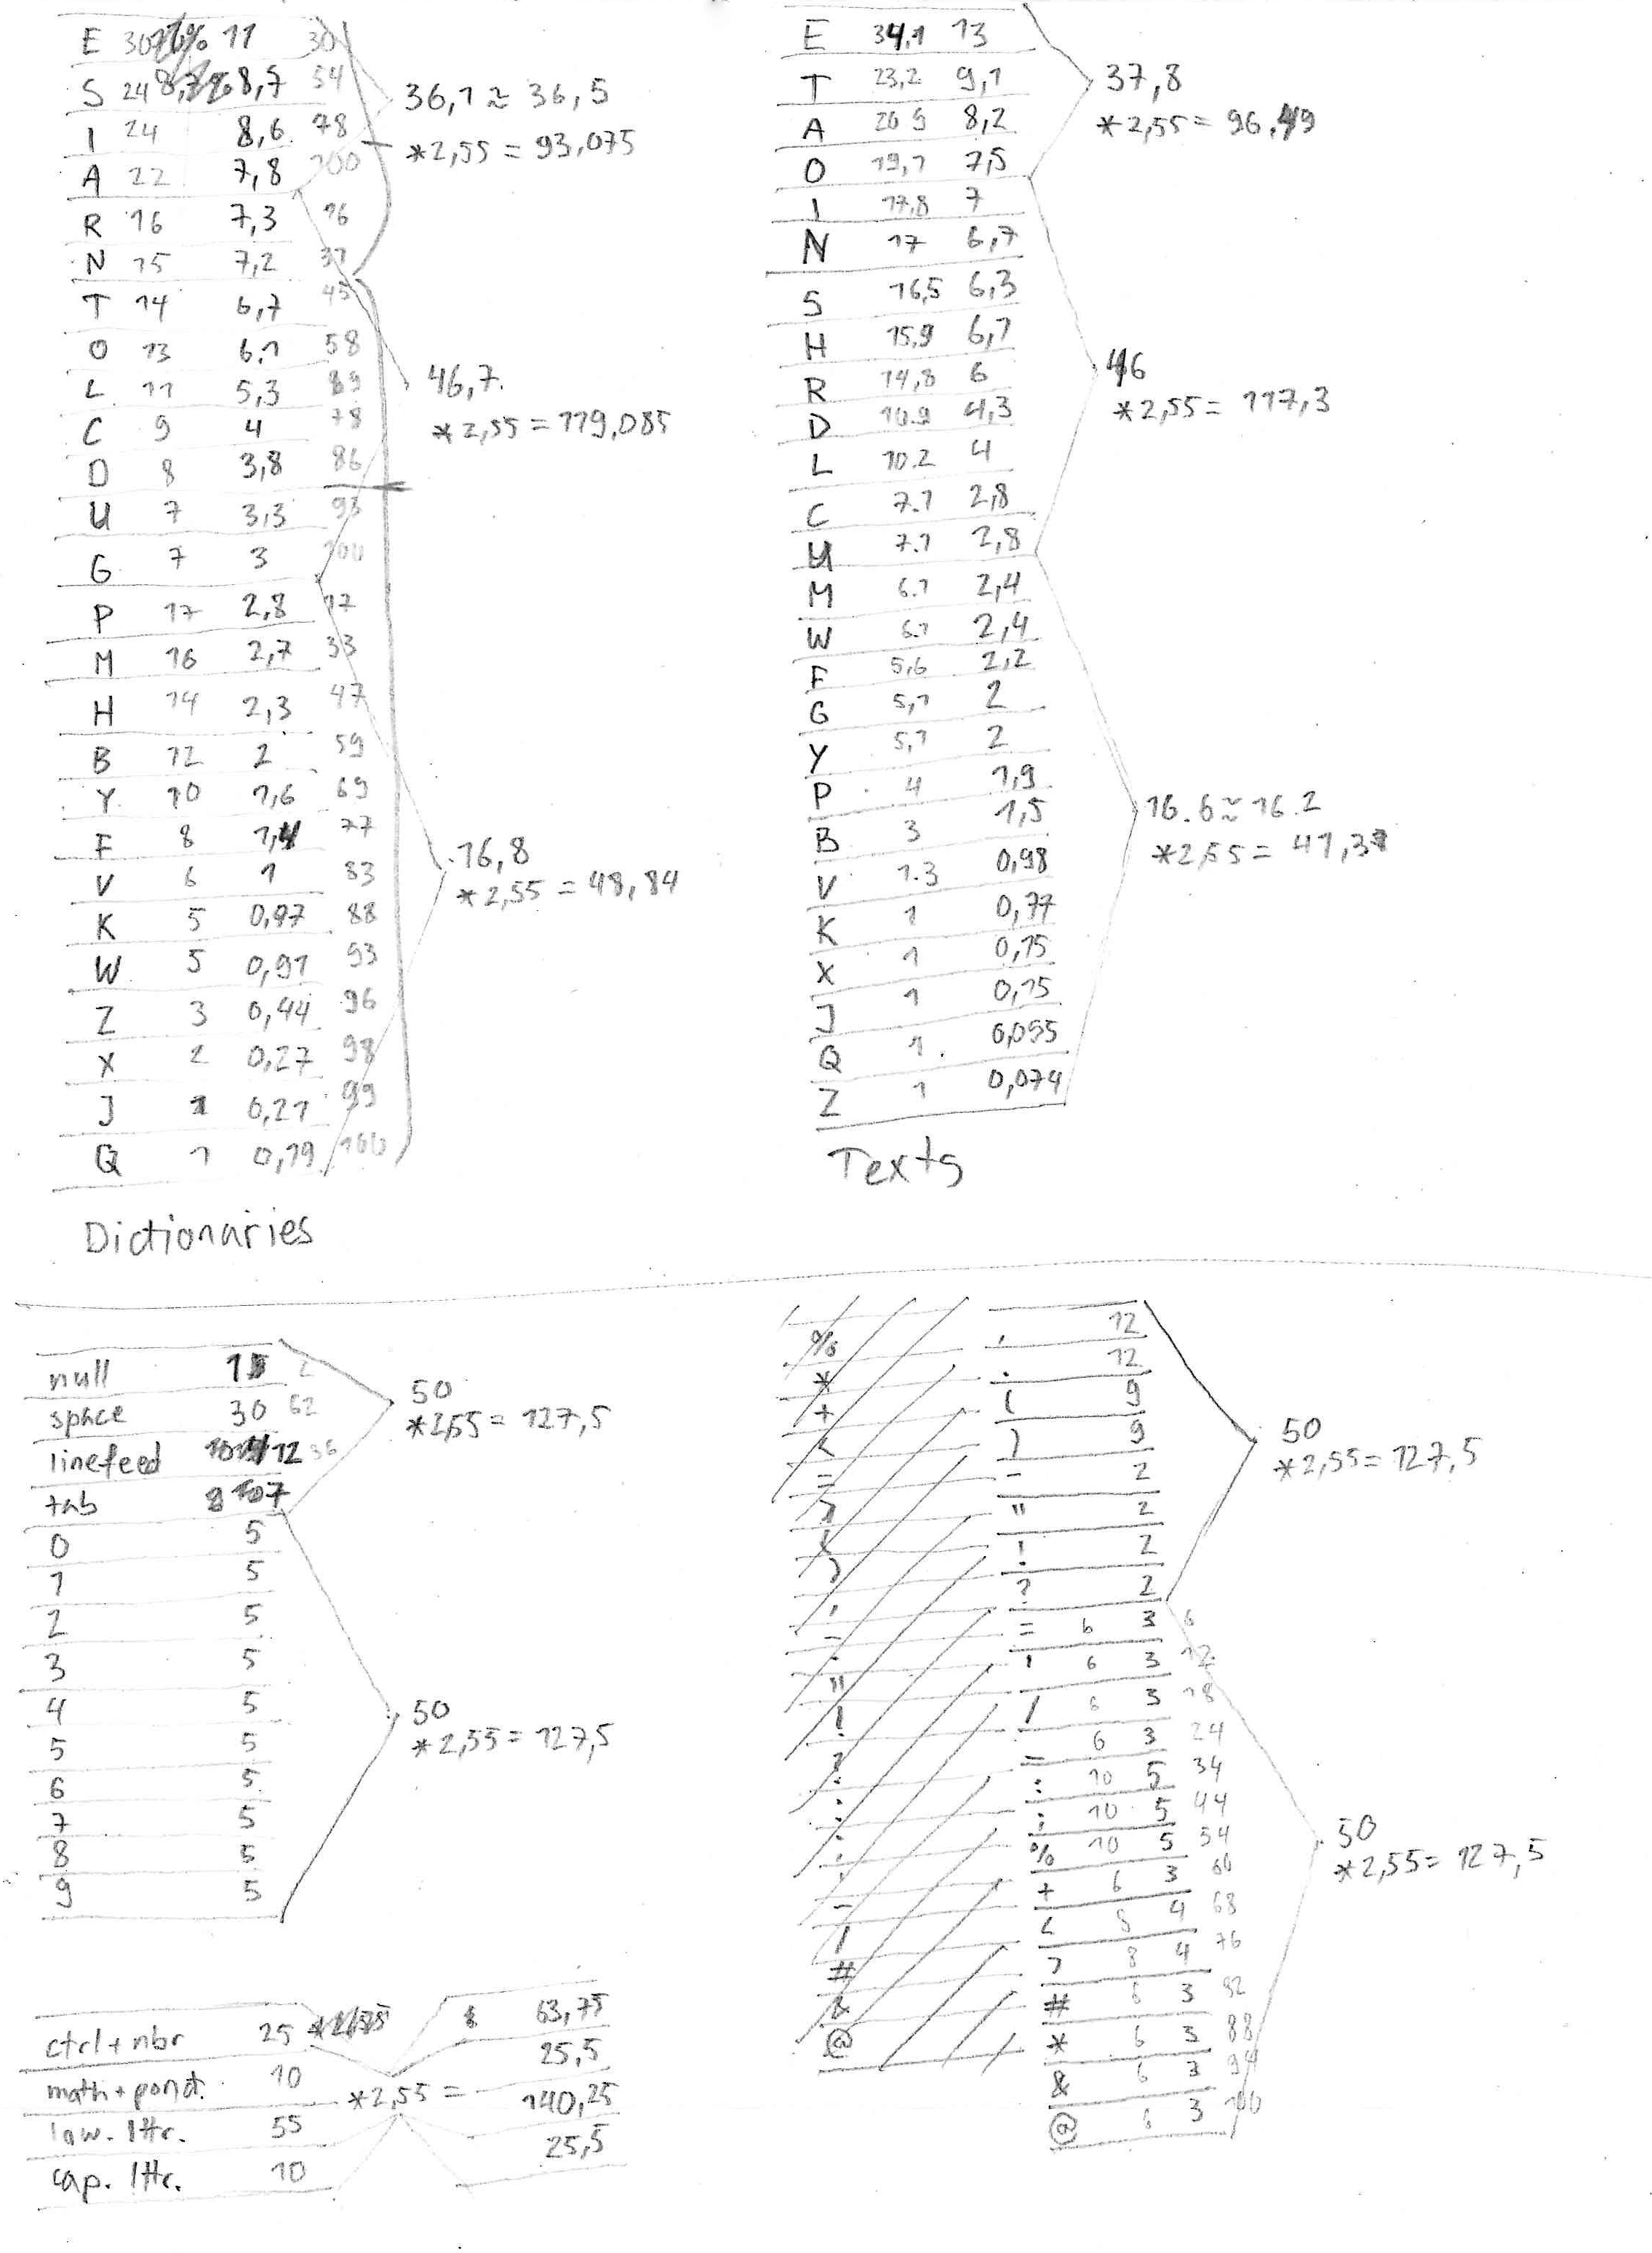 E 30 11 30
S 24 8,7 54
I 24 8,6 78
A 22 7,8 100
R 16 7,3 16
N 15 7,2 31
T 14 6,7 45
O 13 6,1 58
L 11 5,3 69
C 9 4 78
D 8 3,8 86
U 7 3,3 93
G 7 3 100
P 17 2,8 17
M 16 2,7 33
H 14 2,3 47
B 12 2 59
Y 10 1,6 69
F 8 1,4 77
V 6 1 83
K 5 0,97 88
W 5 0,91 93
Z 3 0,44 96
X 2 0,27 98
J 1 0,21 99
Q 1 0,19 100
36,1 ≈ 36,5
*2,55 = 93,075
46,7
*2,55 = 119,085
16,8
*2,55 = 48,84
Dictionaries
E 34,1 13
T 23,2 9,1
A 20 9 8,2
O 19,1 7,5
I 17,8 7
N 17 6,7
S 16,5 6,3
H 15,9 6,1
R 14,8 6
D 10.9 4,3
L 10.2 4
C 7.1 2,8
U 7.1 2,8
M 6.1 2,4
W 6.1 2,4
F 5,6 2,2
G 5,1 2
Y 5,1 2
P 4 1,9
B 3 1,5
V 1.3 0,98
K 1 0,77
X 1 0,15
J 1 0,15
Q 1 0,095
Z 1 0,074
37,8
*2,55 = 96,49
46
*2,55 = 117,3
16.6 ≈ 16.2
*2,55 = 41,31
Texts
null 1
space 30 62
linefeed 12
tab 7
0 5
1 5
2 5
3 5
4 5
5 5
6 5
7 5
8 5
9 5
50
*2,55 = 127,5
50
*2,55 = 127,5
%
*
+
<
=
>
(
)
,
-
.
"
!
?
:
;
'
_
/
#
&
@
, 12
. 12
( 9
) 9
- 2
" 2
! 2
? 2
= 6 3 6
' 6 3 12
/ 6 3 18
_ 6 3 24
: 10 5 34
; 10 5 44
% 10 5 54
+ 6 3 60
< 8 4 68
> 8 4 76
# 6 3 82
* 6 3 88
& 6 3 94
@ 6 3 100
50
*2,55 = 127,5
50
*2,55 = 127,5
ctrl + nbr 25 63,75
math + ponct. 10 25,5
*2,55 =
low. lttr. 55 140,25
cap. lttr. 10 25,5